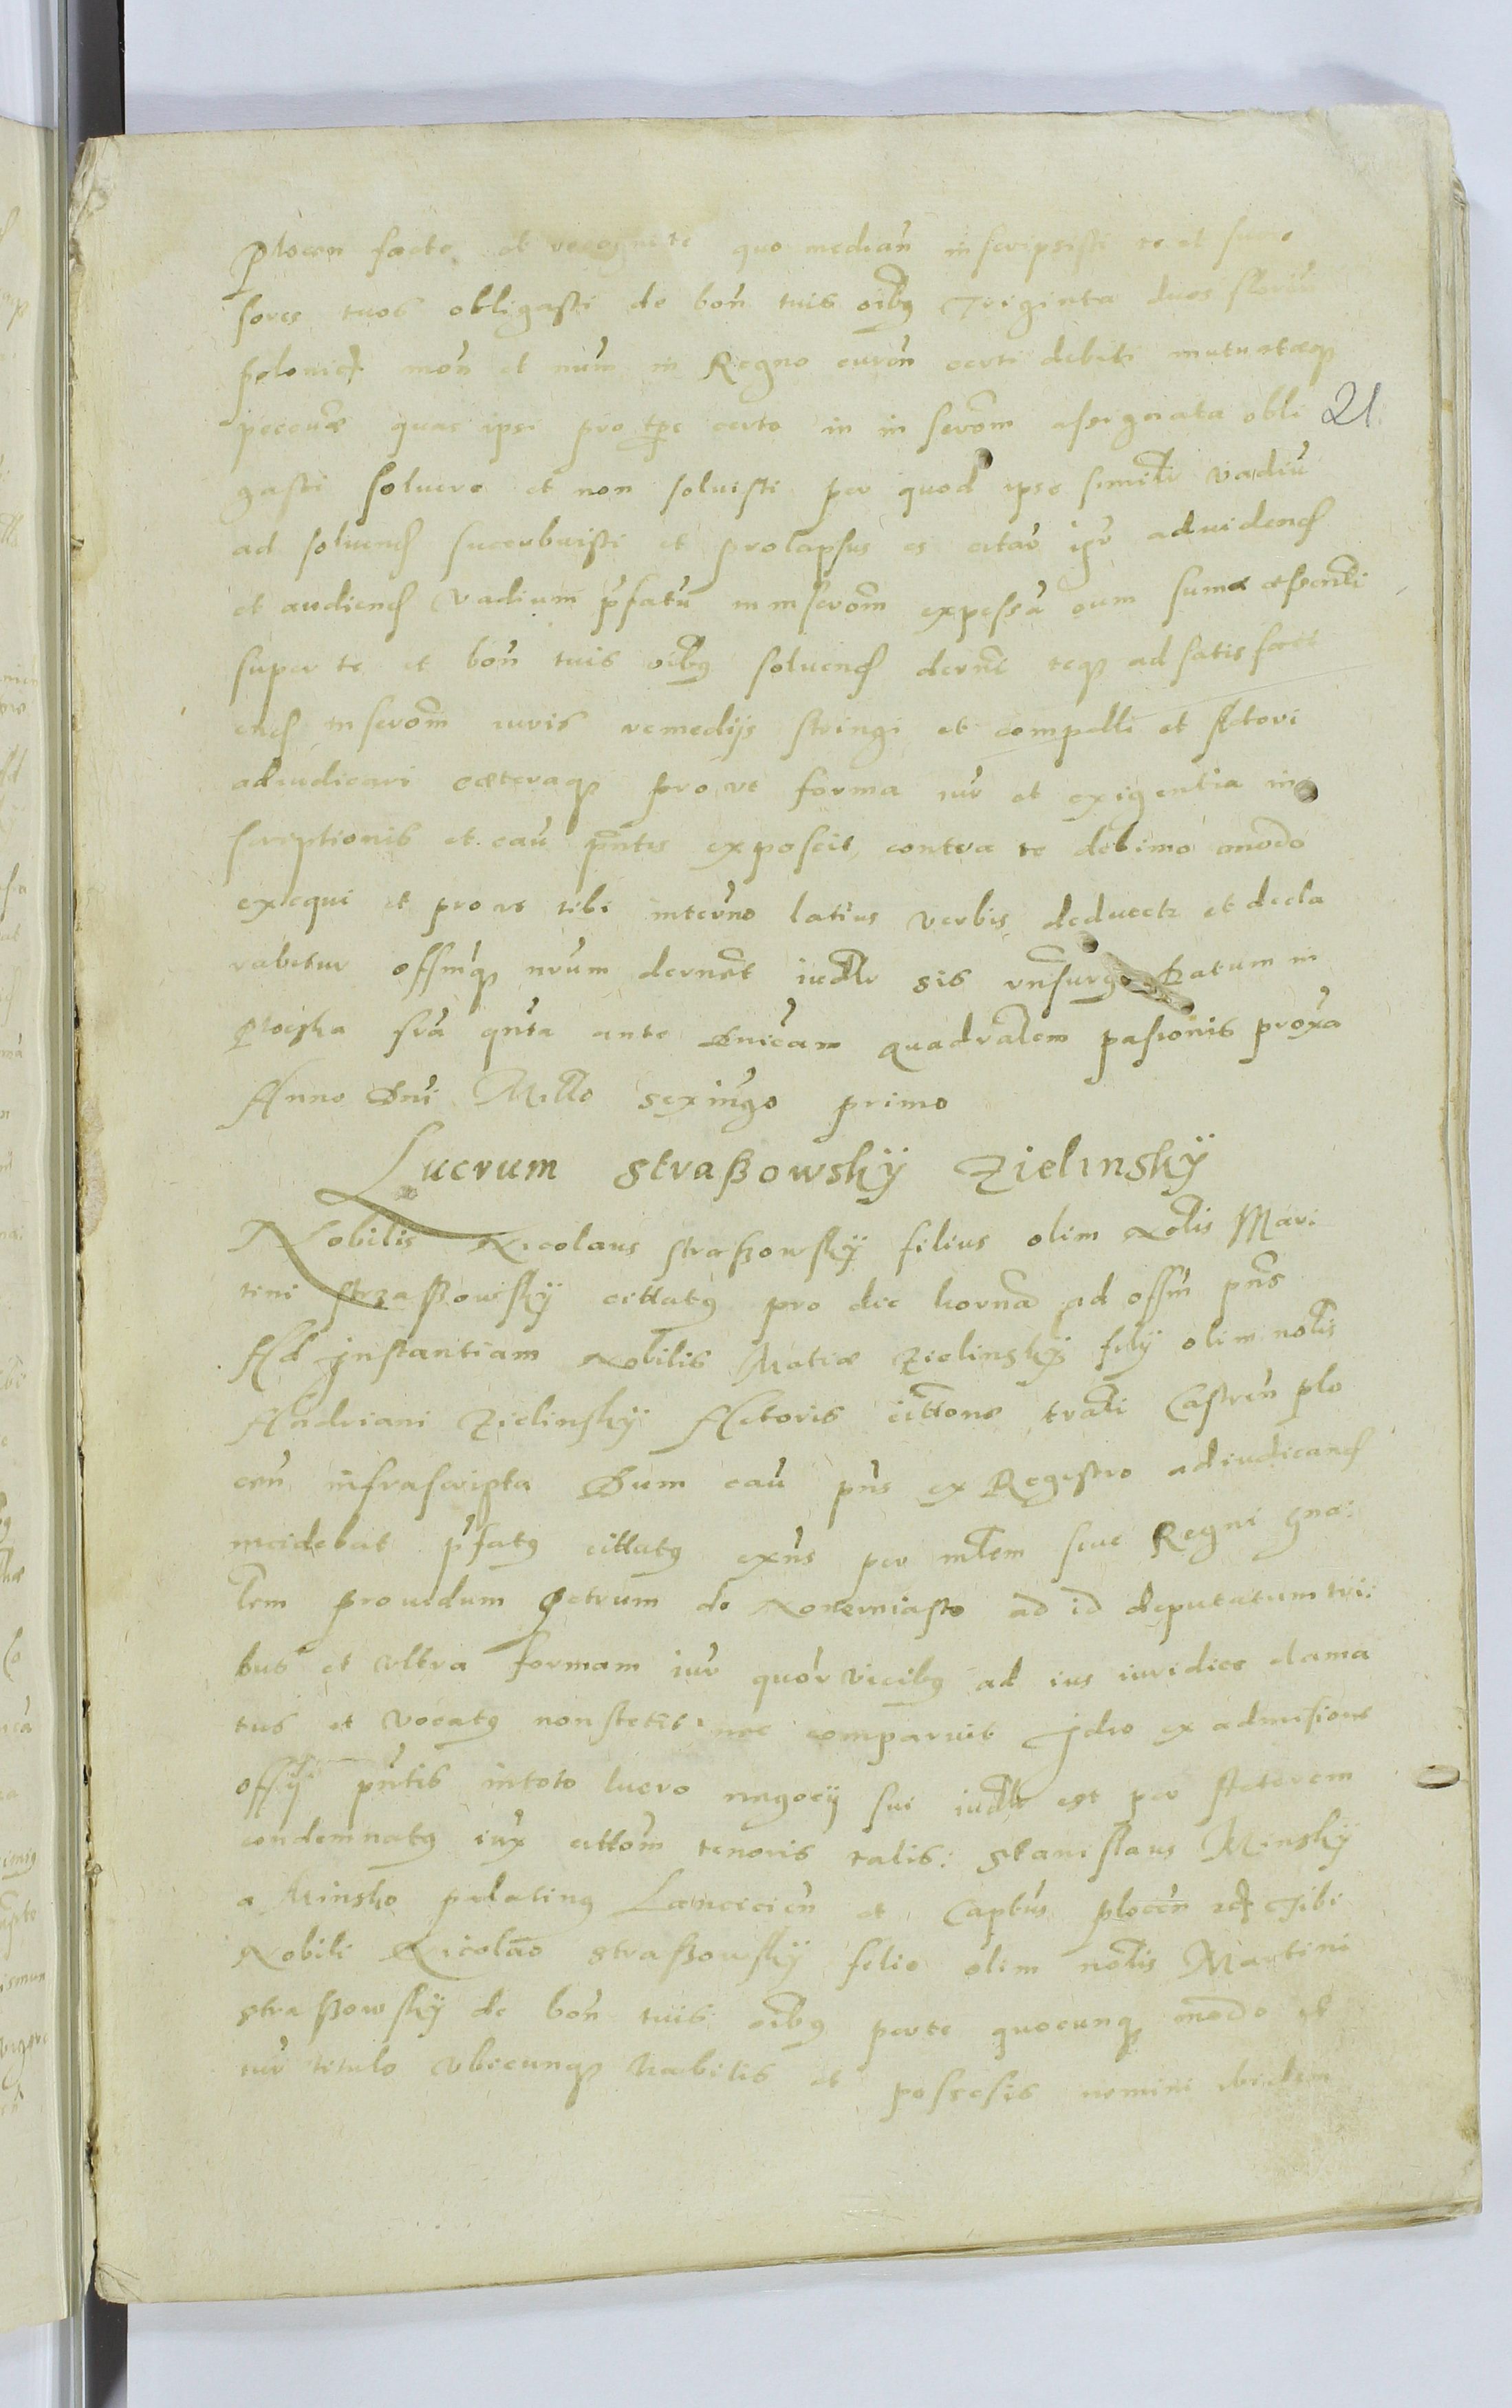 Plocen facte et recognite quo median inscripsisti te et succe
sores tuos obligasti de bon tuis oibg Triginta duos floren
polonica mon et num in Regno curen certi debiti mutuatæq
pecuniæ quas ipsi pro tpe certo in inscrom assignata obli
21
gasti soluere et non soluisti per quod ipse simili vadiu
ad soluend sucubuisti et prolapsus es citar igr ad vidend
et audiend vadium pfatu in inscrom expressa cum suma assenti
super te et bon tuis oibg soluend derni teq ad satisfaci
end inscrom iuris remediis stringi et compelli et Actori
adiudicari cæteraq pro vt forma iur et exigentia in
scriptionis et cau pntis exposcit contra te debimo modo
exequi et pro vt tibi intermo latius verbis deducetr et decla
rabitur offmq nrum dernet iudlr sis Datum in
Plocka fra qnta ante Dnicam quadralem pasionis proxa
Anno Dni Millo sexingo primo
Lucrum Straßowsky Zielinsky
Nobilis Nicolaus Straßowsky filius olim Nobilis Mar
tini Strzaßowsky cittatg pro die horna ad offm pns
Ad Jnstantiam Nobilis Matiæ Zielinsky filij olim nobilis
Hadriani Zielinsky Actoris cittone trali Castren plo
cen infrascripta Dum cau pns ex Registro adiudicand
incidebat pfatg cittatg exns per mlem siue Regni gna
lem prouidum Petrum de Nowemiasto ad id deputatum tri
bus et vltra formam iur quor vicibg ad ius iuridice clama
tus et vocatg non stetit nec comparuit Jdeo ex admisione
offij pntis in toto lucro negocij sui iudlr est per Actorem
condemnatg iux cittom tenoris talis: Stanislaus Minsky
a Minsko palating Lanccicien et Captus plocen Tibi
Nobili Nicolao Straßowsky filio olim nobilis Martini
Straßowsky de bon tuis oibg per te quocunq modo et
iur titulo vbicunq habitis et possesis nemini ibidem